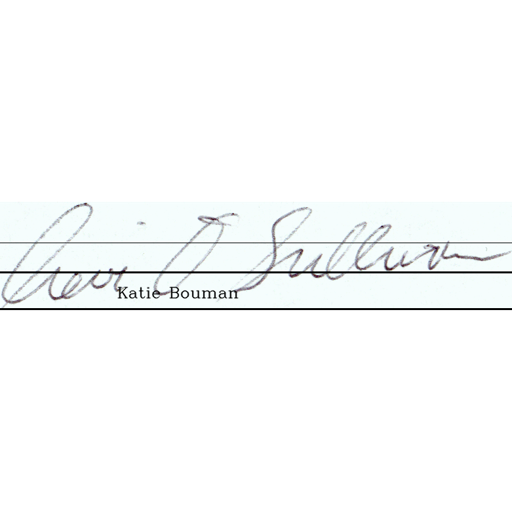 O'Sullivan
Katie Bouman